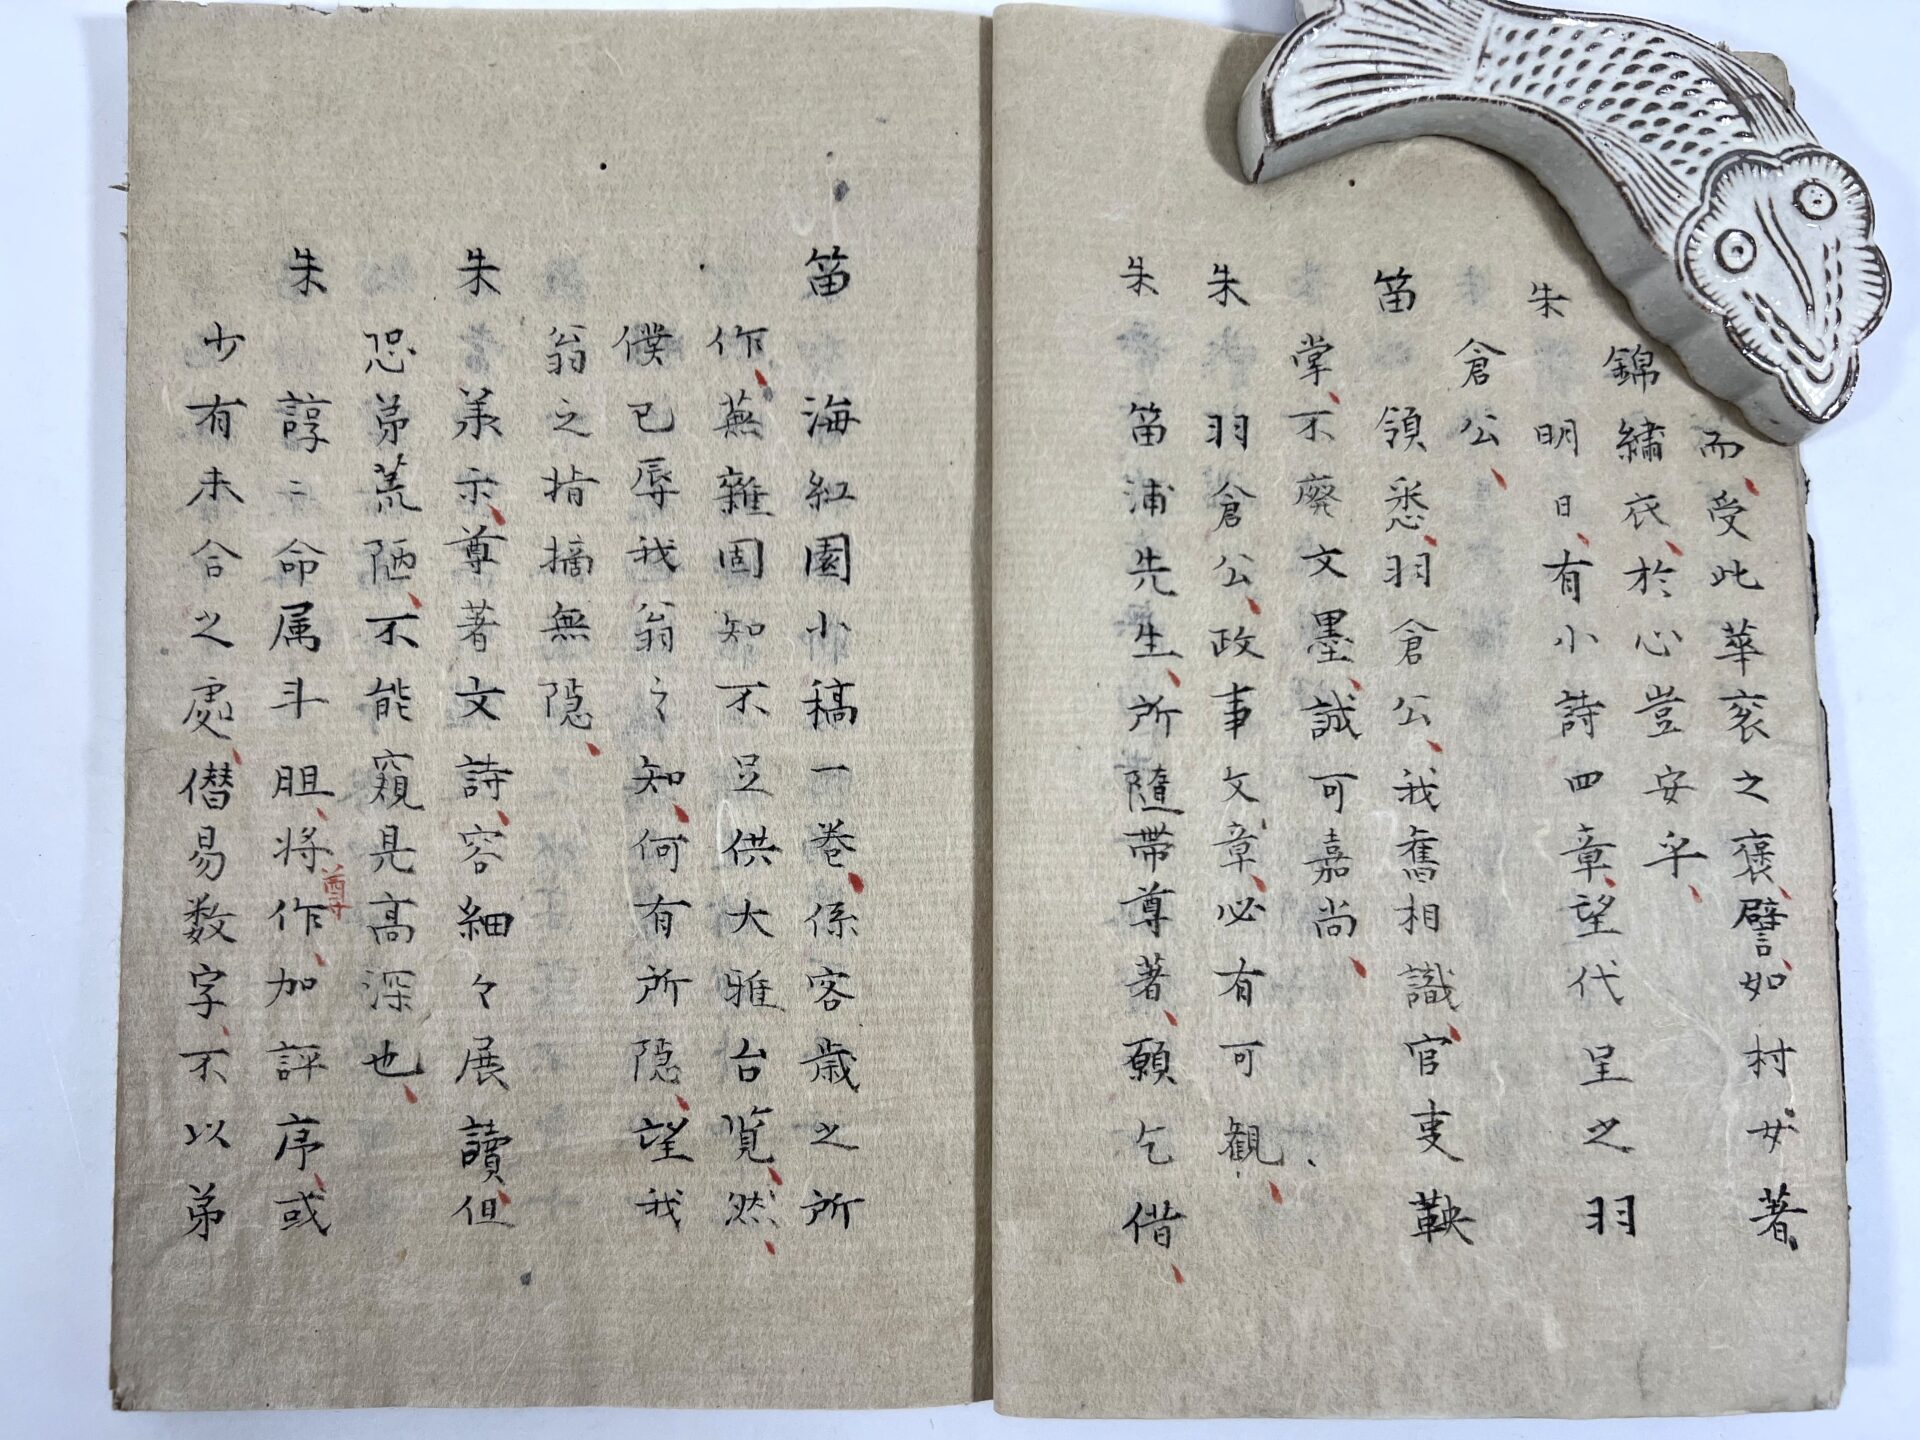 而、受此華衮之褒、譬、如村女著、
錦繡衣、於心豈安乎、
朱 明日、有小詩四章、望代呈之羽
倉公、
笛 領悉、羽倉公、我舊相識、官吏鞅
掌、不廃文墨、誠可嘉尚、
朱 羽倉公、政事文章、必有可観、
朱 笛浦先生、所隨帯尊著、願乞借、
笛 海紅園小稿一巻、係客歳之所
作、蕪雜固知不足供大雅台覧、然、
僕已辱我翁之知、何有所隠、望我
翁之指摘無隠、
朱 羕示、尊著文詩、容細々展讀、但
恐弟荒陋、不能窺見高深也、
朱 諄〻命属斗胆、将尊作、加評序、或
少有未合之處、僭易数字、不以弟